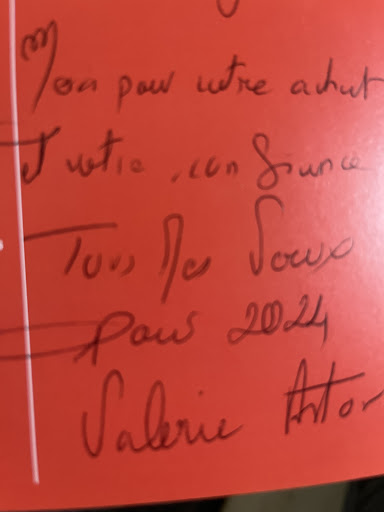 Merci pour votre achat
et votre confiance
Tous Mes Voeux
pour 2024
Valerie